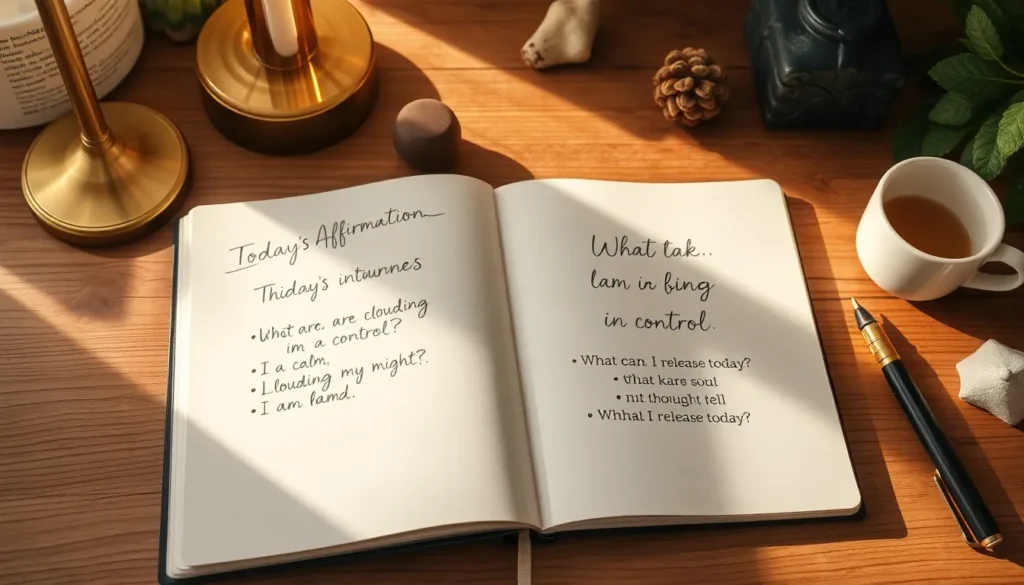 Today's Affirmation
Thiday's intuurnes
• What are. are clouding
im a control?
• I a calm.
• Llouding my might?.
• I am famd.
What tak..
lam in fing
in control.
• What can I release today?
• What kare soul
• nit thought tell
• Whhal I release today?